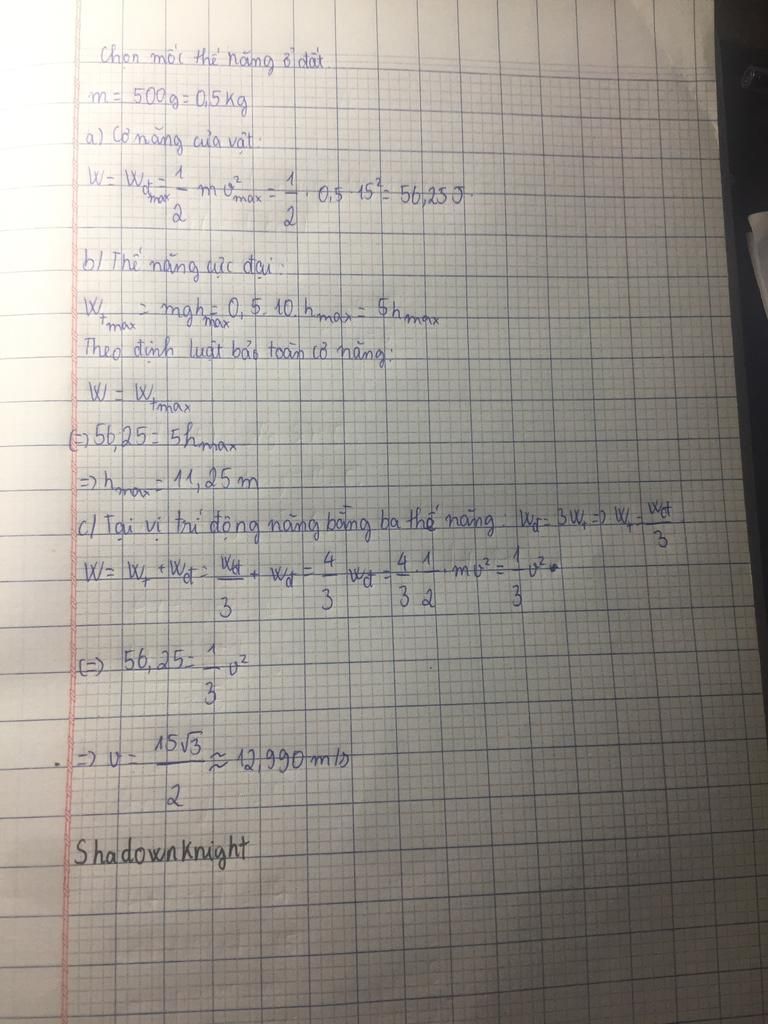 Chọn mốc thế năng ở đất
m = 500g = 0,5 kg
a) Cơ năng của vật:
W = Wđmax = 1/2 m v²max = 1/2 . 0,5 . 15² = 56,25 J
b/ Thế năng cực đại:
Wtmax = mghmax = 0,5.10.hmax = 5hmax
Theo định luật bảo toàn cơ năng:
W = Wtmax
(=) 56,25 = 5hmax
=> hmax = 11,25 m
c/ Tại vị trí động năng bằng ba thế năng: Wđ = 3Wt => Wt = Wđ/3
W = Wt + Wđ = Wđ/3 + Wđ = 4/3 Wđ = 4/3 . 1/2 . mv² = 1/3 v²
(=) 56,25 = 1/3 v²
=> v = 15√3/2 ≈ 12,990 m/s
Shadownknight